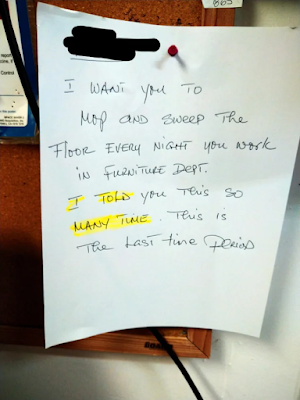 I WANT YOU TO
MOP AND SWEEP THE
FLOOR EVERY NIGHT YOU WORK
IN FURNITURE DEPT.
I TOLD YOU THIS SO
MANY TIME. THIS IS
THE LAST TIME PERIOD